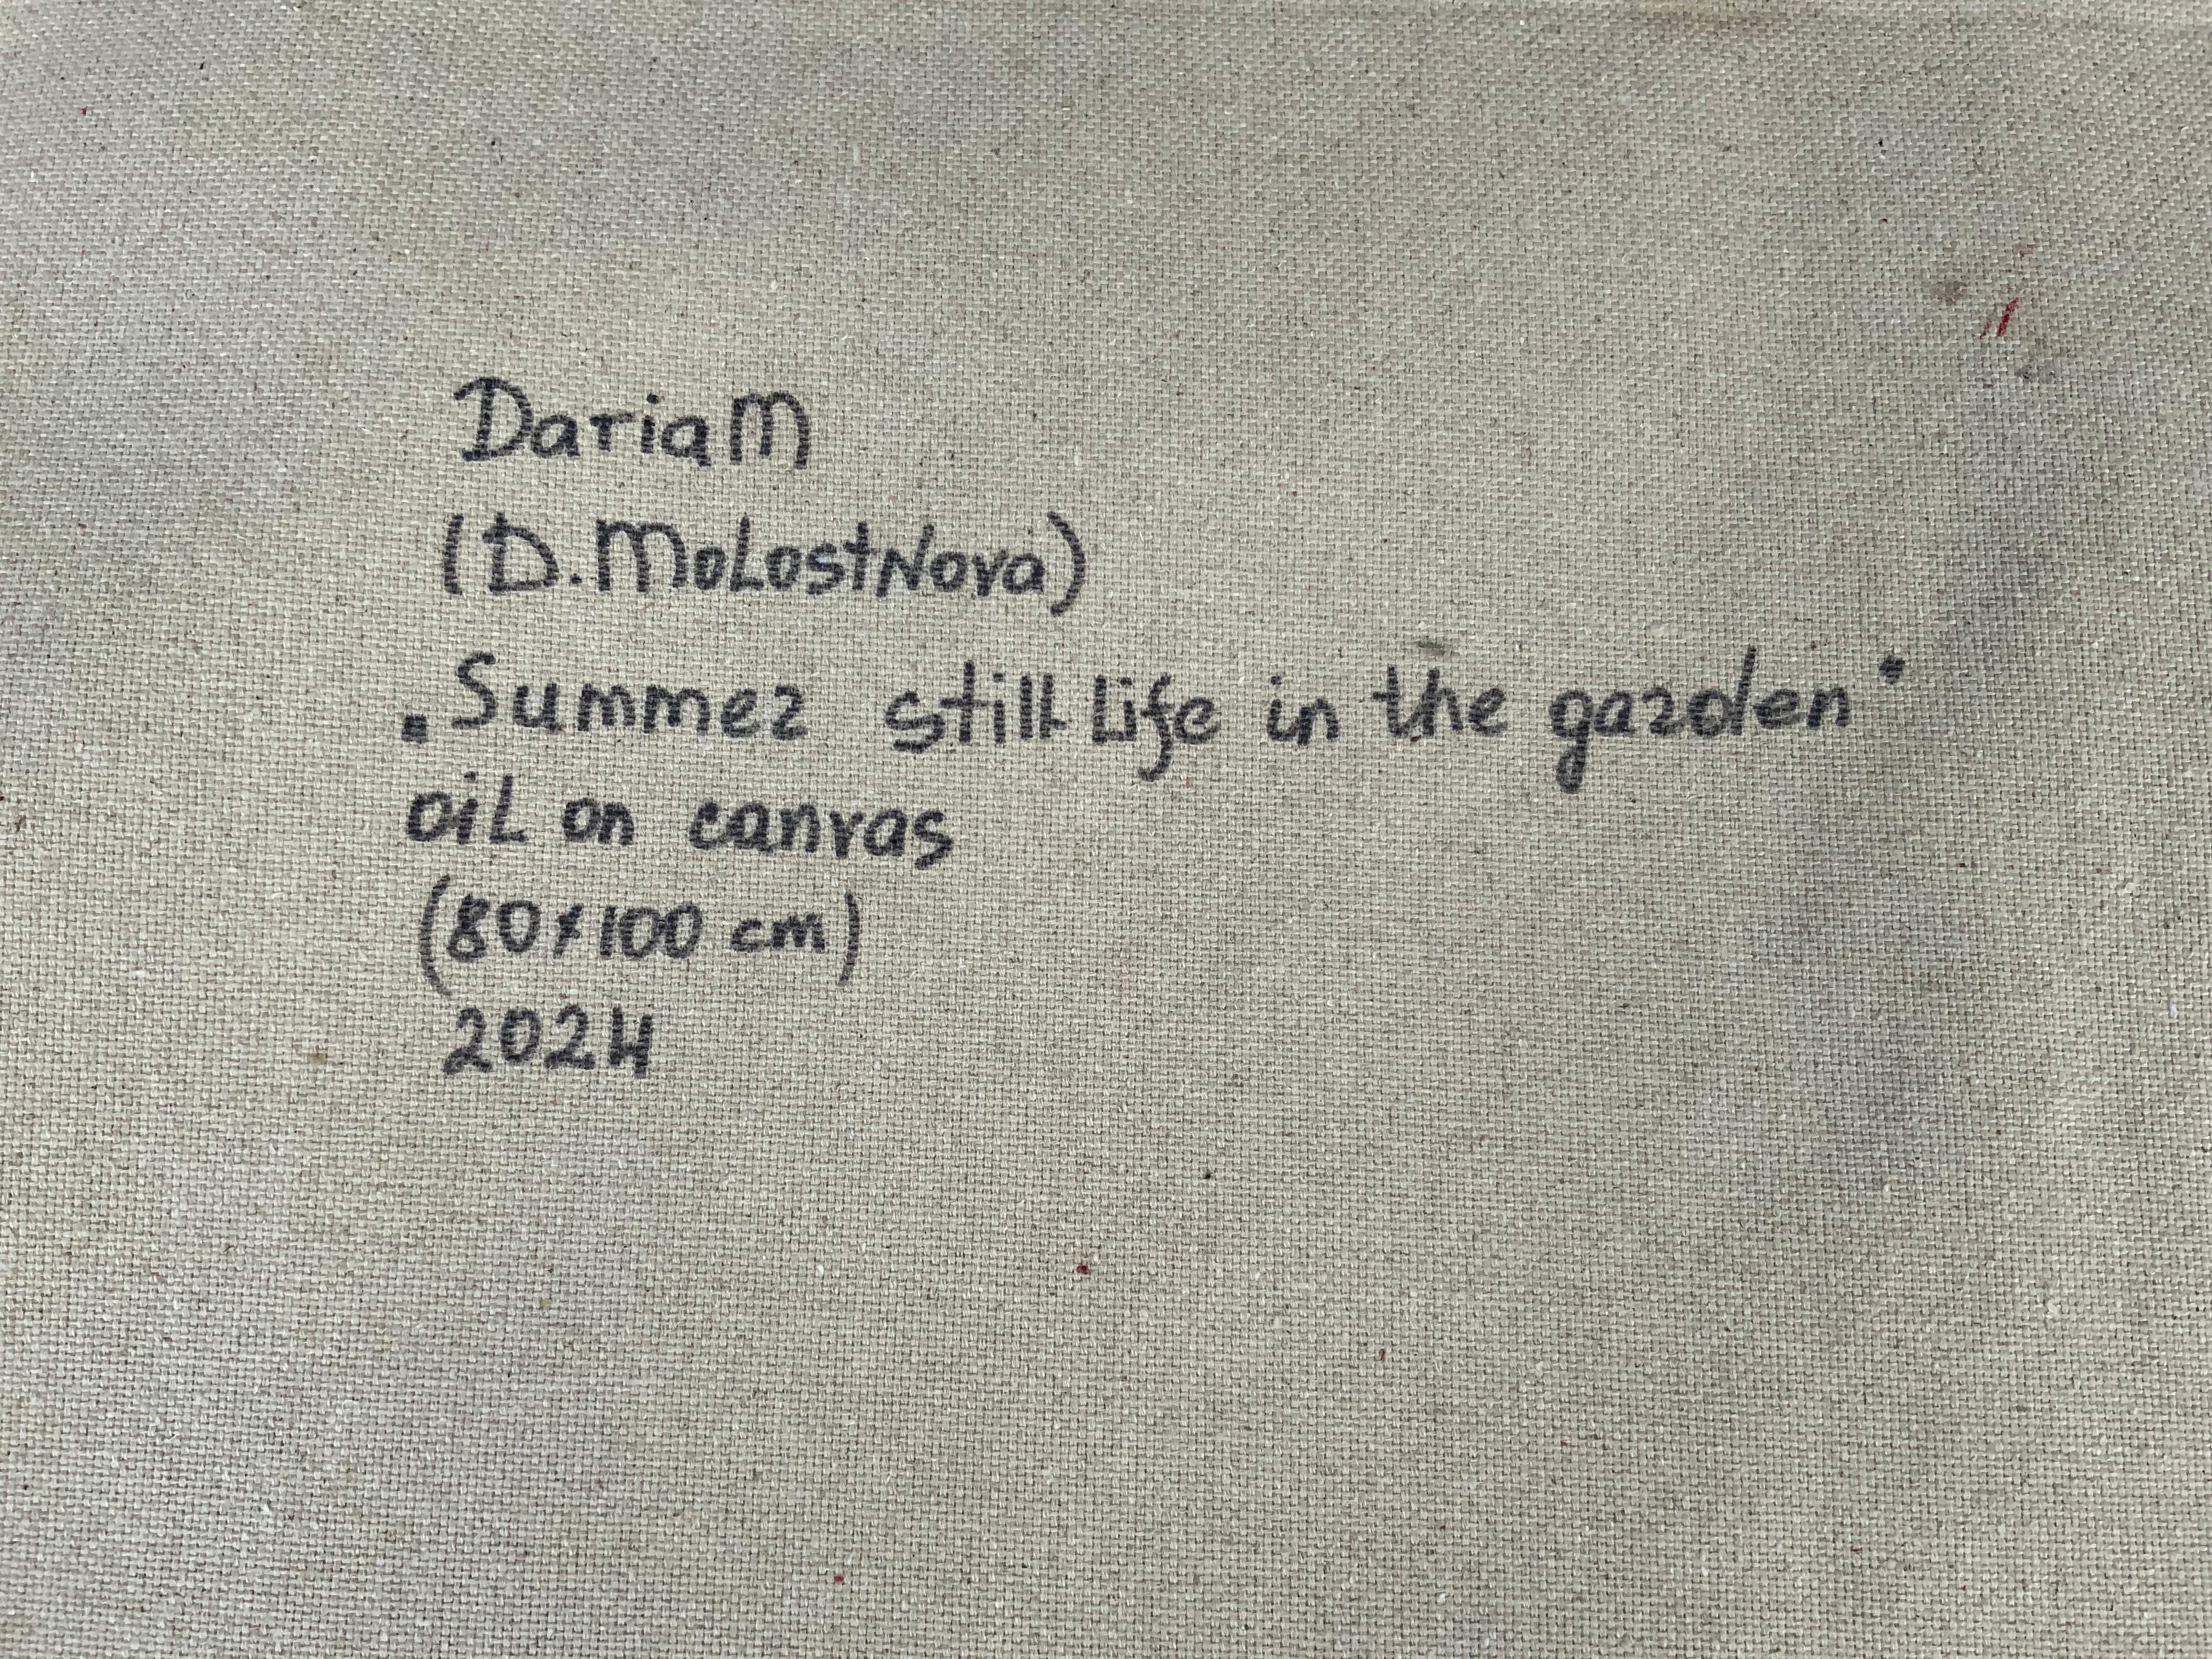 DariaM
(D. MoLostNova)
"Summer still Life in the garden"
oiL on canvas
(80x100 cm)
2024